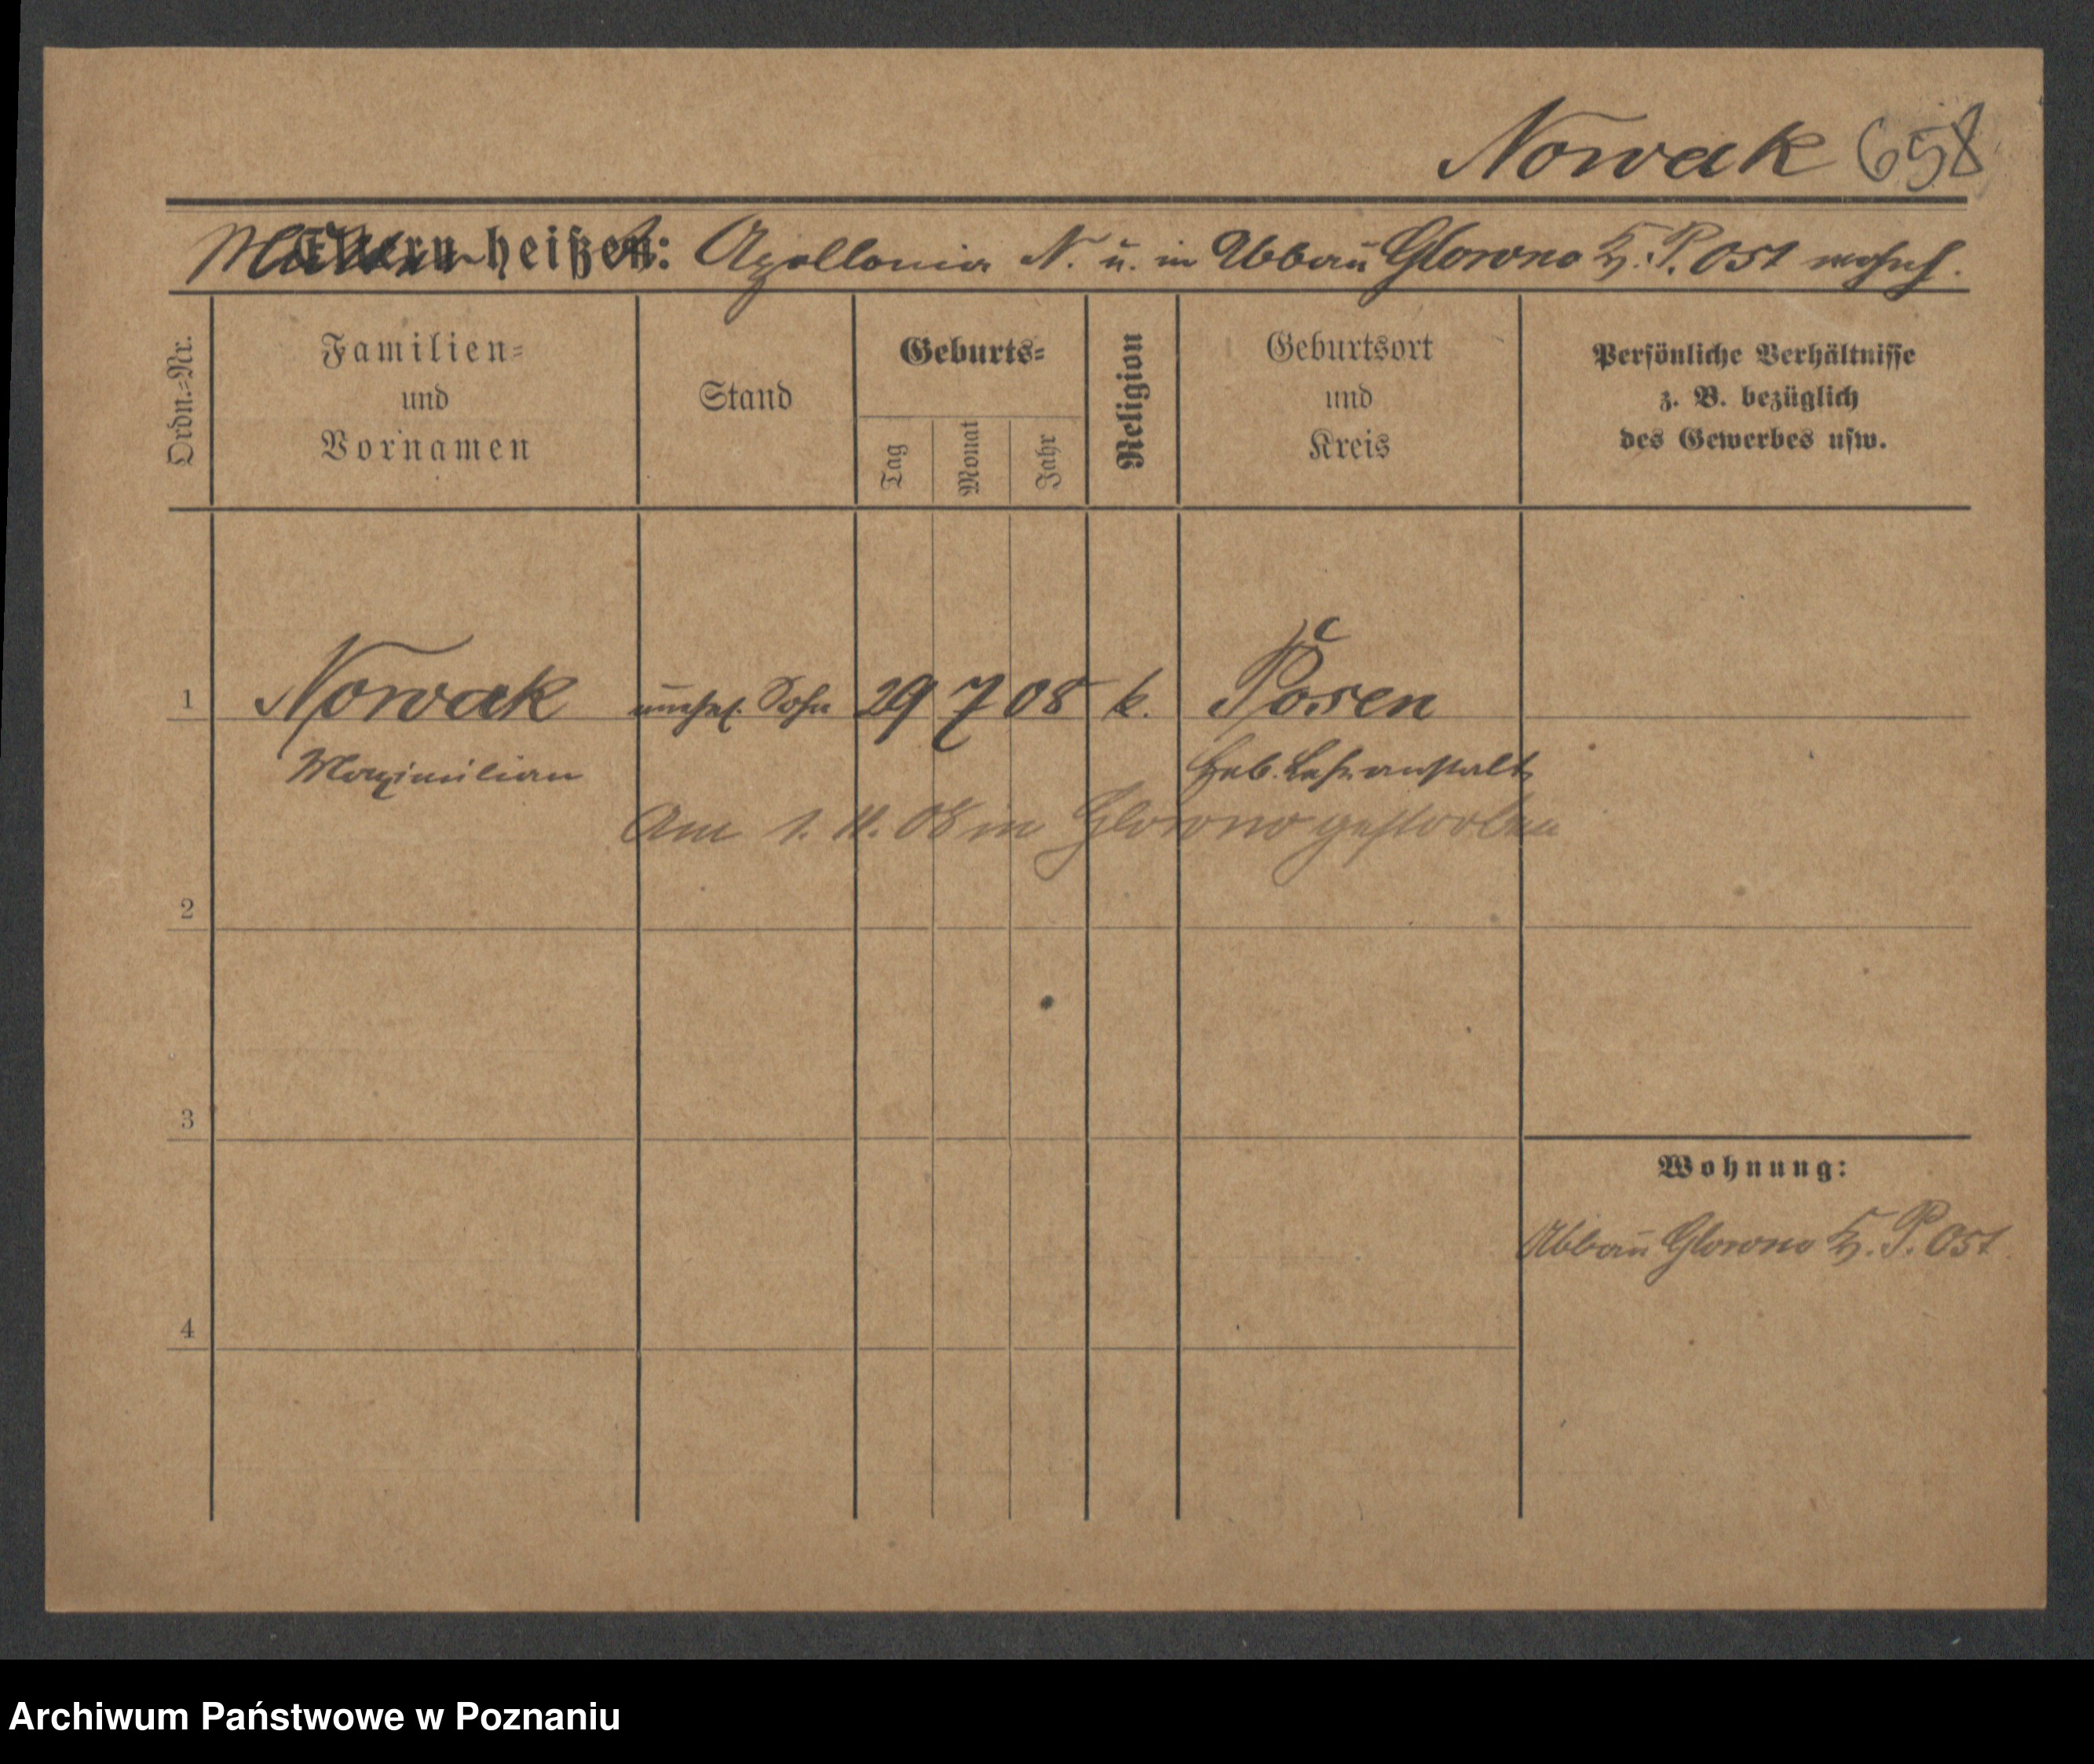 Nowak 658
Mutter heißt: Apollonia N. u. in Abbau Glowno K. P. Ost wohnh.
Ordn.-Nr.
Familien-
und
Vornamen
Stand
Geburts-
Tag
Monat
Jahr
Religion
Geburtsort
und
Kreis
Persönliche Verhältnisse
z. B. bezüglich
des Gewerbes usw.
1 Nowak unehel. Sohn 29 7 08 k. Posen
Maximilian Heb. Lehranstalt
Am 1. 11. 08 in Glowno gestorben
2
3
Wohnung:
Abbau Glowno K. P. Ost
4
Archiwum Państwowe w Poznaniu